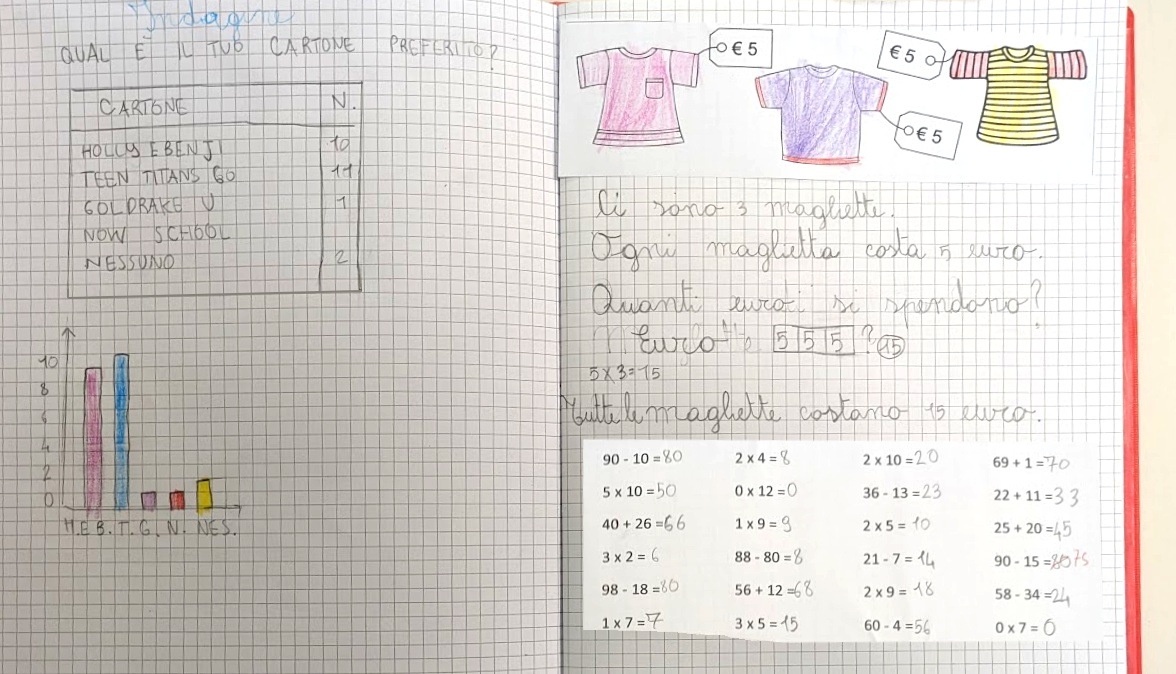 Indagine
QUAL È IL TUO CARTONE PREFERITO?
CARTONE N.
HOLLY E BENJI 10
TEEN TITANS GO 11
GOLDRAKE U 1
NOW SCHOOL
NESSUNO 2
10
8
6
4
2
0
H.E B. T. G. N. NES.
€ 5
€ 5
€ 5
Ci sono 3 magliette.
Ogni maglietta costa 5 euro.
Quanti euro si spendono?
Euro 5 5 5 ? 15
5 x 3 = 15
Tutte le magliette costano 15 euro.
90 - 10 = 80 2 x 4 = 8 2 x 10 = 20 69 + 1 = 70
5 x 10 = 50 0 x 12 = 0 36 - 13 = 23 22 + 11 = 33
40 + 26 = 66 1 x 9 = 9 2 x 5 = 10 25 + 20 = 45
3 x 2 = 6 88 - 80 = 8 21 - 7 = 14 90 - 15 = 75
98 - 18 = 80 56 + 12 = 68 2 x 9 = 18 58 - 34 = 24
1 x 7 = 7 3 x 5 = 15 60 - 4 = 56 0 x 7 = 0